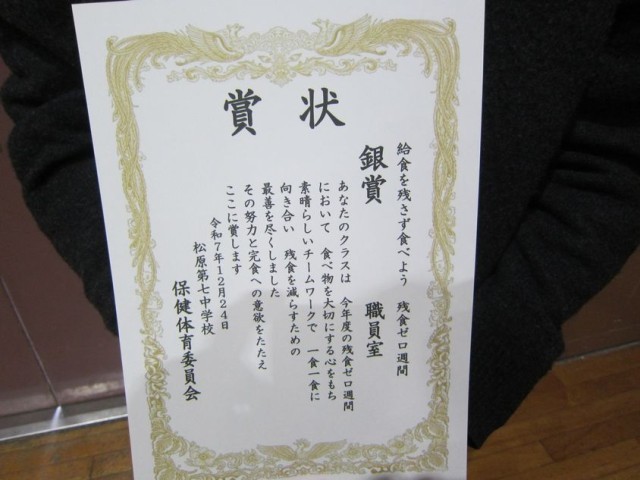 賞状
給食を残さず食べよう 残食ゼロ週間
銀賞 職員室
あなたのクラスは 今年度の残食ゼロ週間
において 食べ物を大切にする心をもち
素晴らしいチームワークで 一食一食に
向き合い 残食を減らすための
最善を尽くしました
その努力と完食への意欲をたたえ
ここに賞します
令和7年12月24日
松原第七中学校
保健体育委員会